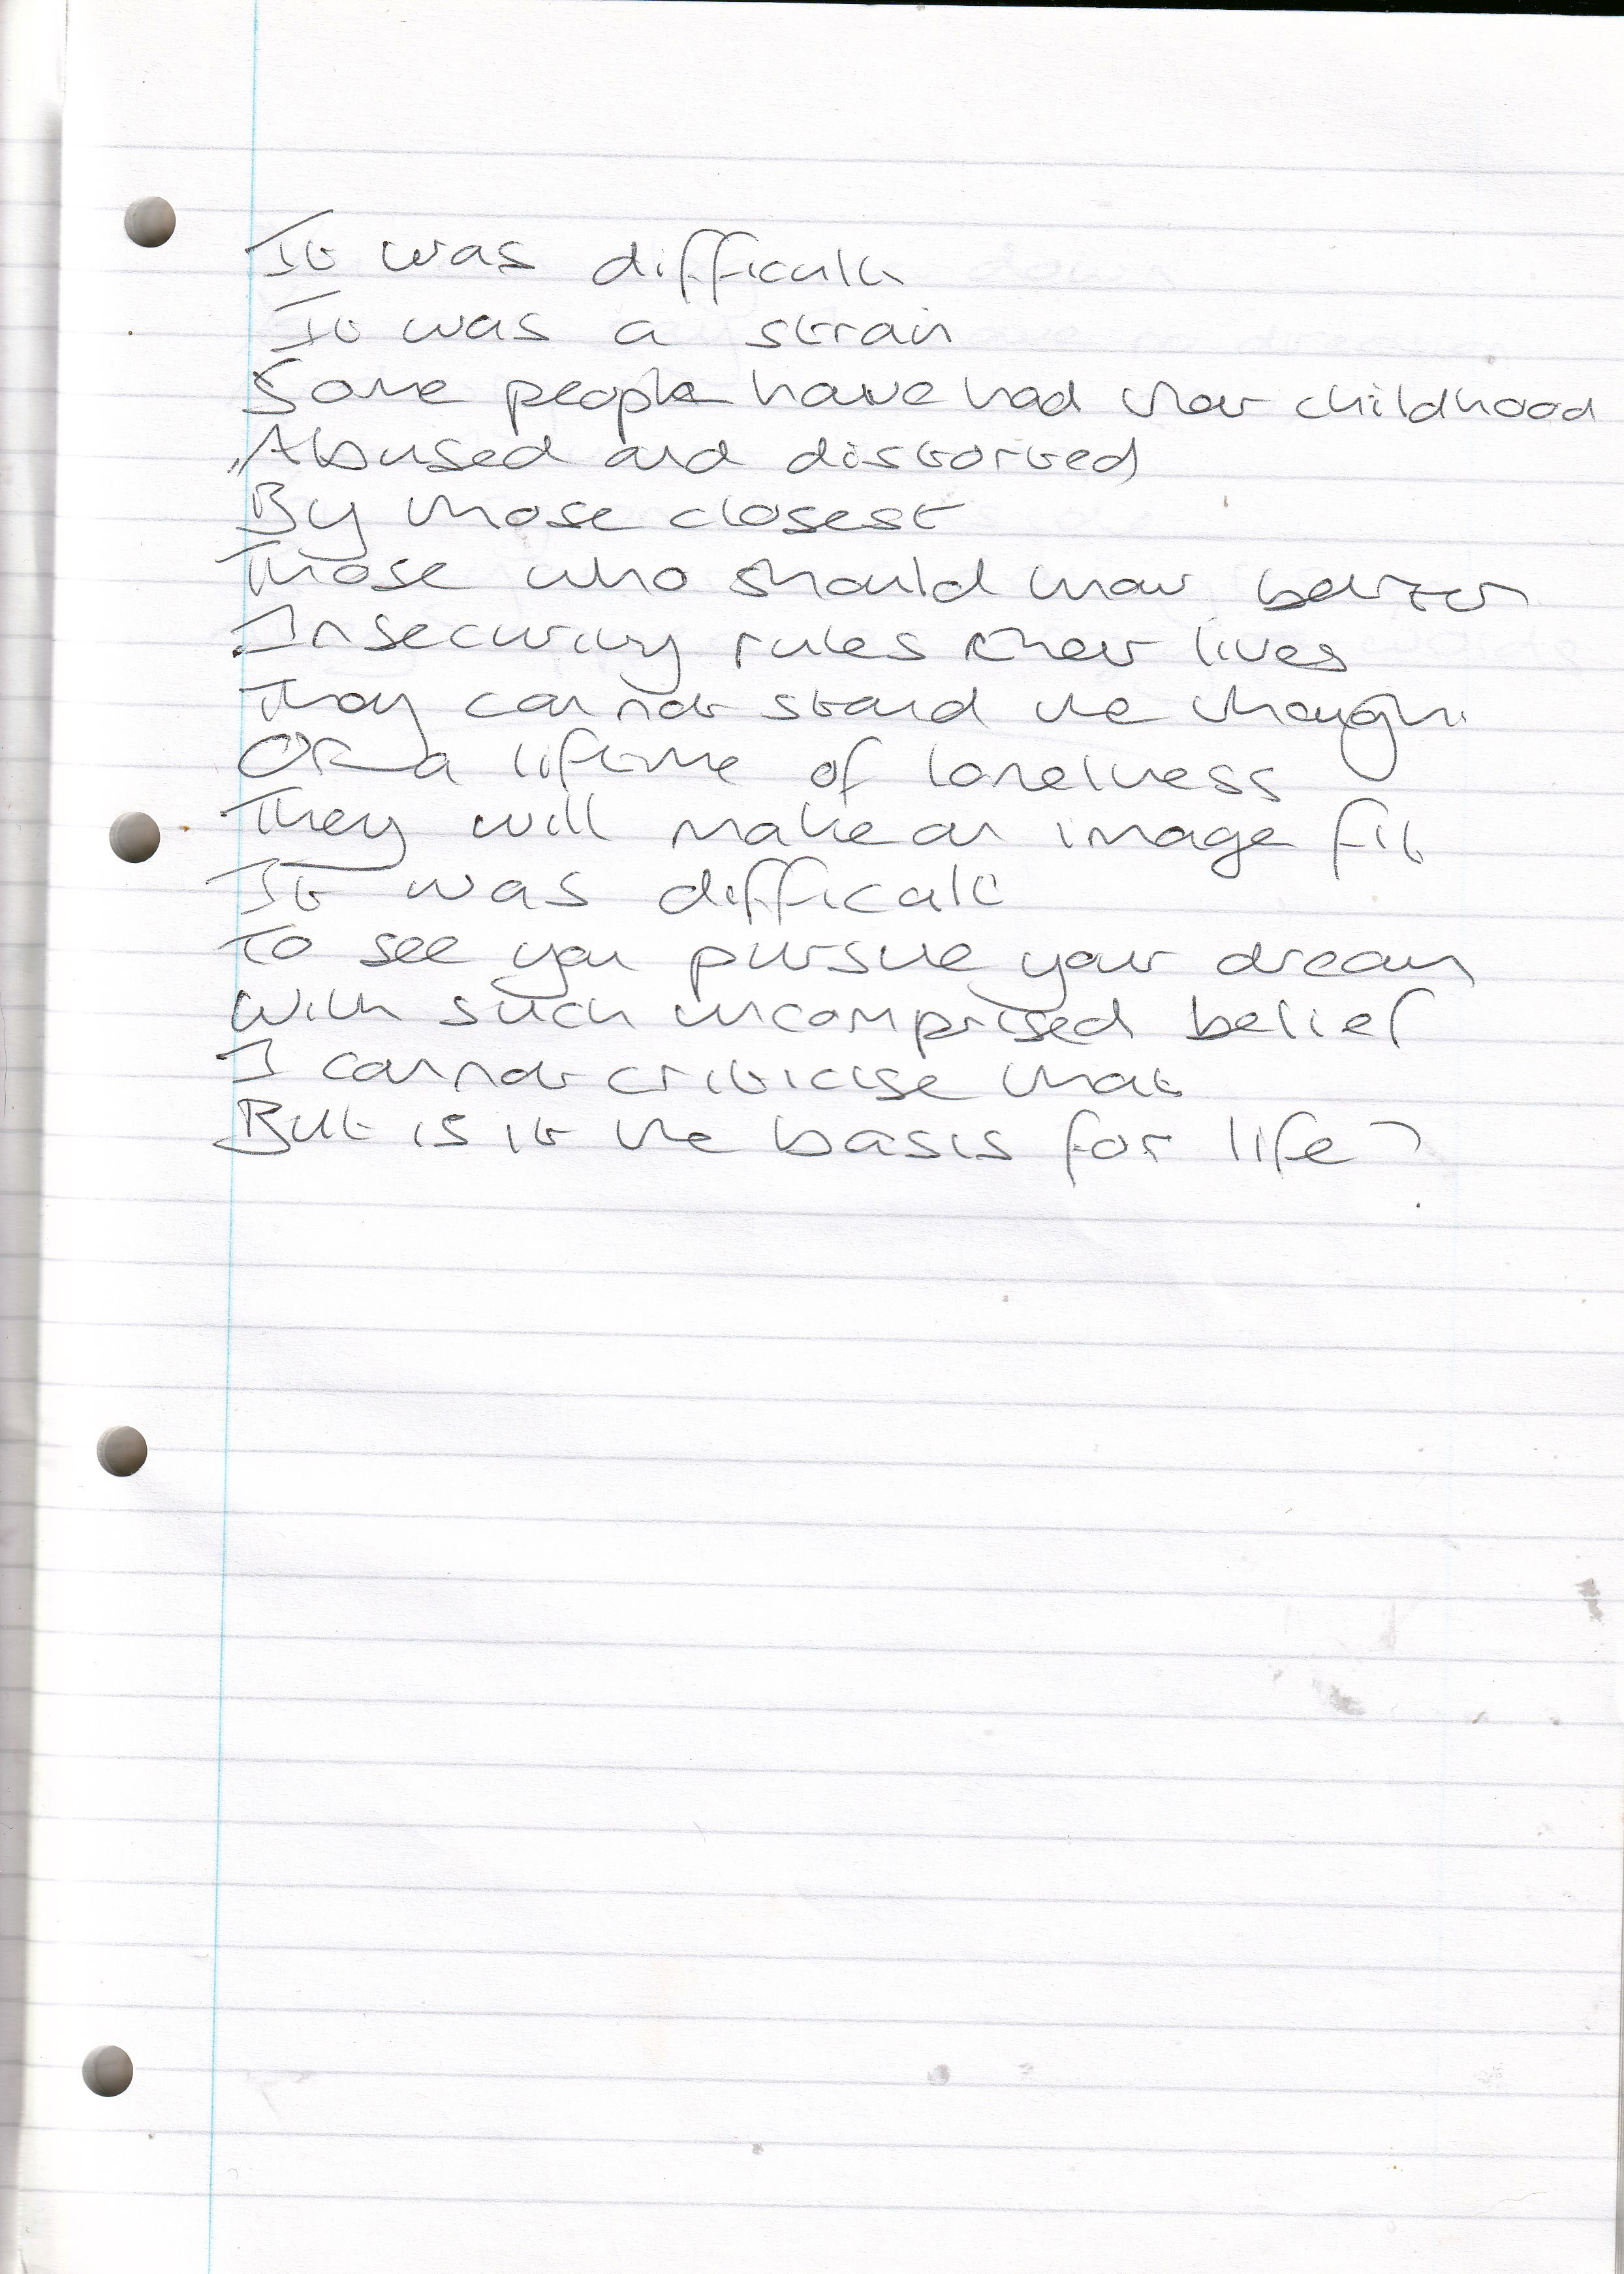 It was difficult
It was a strain
Some people have had their childhood
Abused and distorted
By those closest
Those who should know better
Insecurity rules their lives
They cannot stand the thought
Of a lifetime of loneliness
They will make an image fit
It was difficult
To see you pursue your dream
With such uncomprised belief
I cannot criticise that
But is it the basis for life?